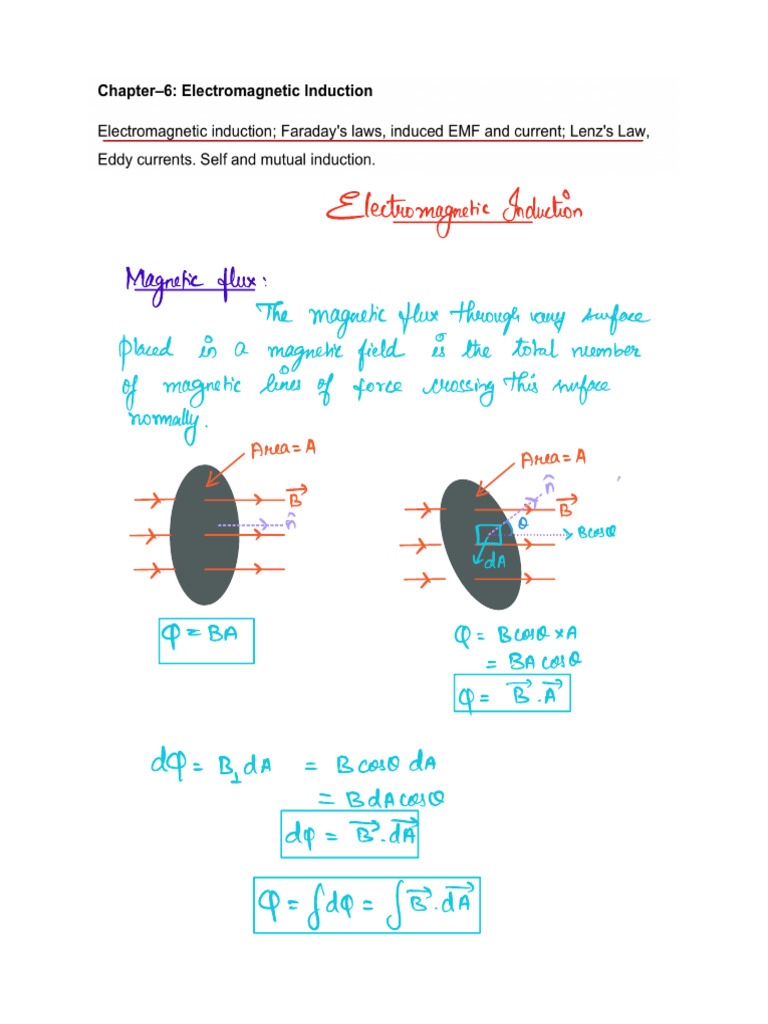 Chapter–6: Electromagnetic Induction
Electromagnetic induction; Faraday's laws, induced EMF and current; Lenz's Law,
Eddy currents. Self and mutual induction.
Electromagnetic Induction
Magnetic flux:
The magnetic flux through any surface
placed in a magnetic field is the total number
of magnetic lines of force crossing this surface
normally.
Area = A
B⃗
n̂
φ = BA
Area = A
n̂
B⃗
θ
B cosθ
dA
φ = B cosθ × A
= BA cosθ
φ = B⃗ . A⃗
dφ = B⊥ dA = B cosθ dA
= B dA cosθ
dφ = B⃗ . dA⃗
φ = ∫dφ = ∫ B⃗ . dA⃗